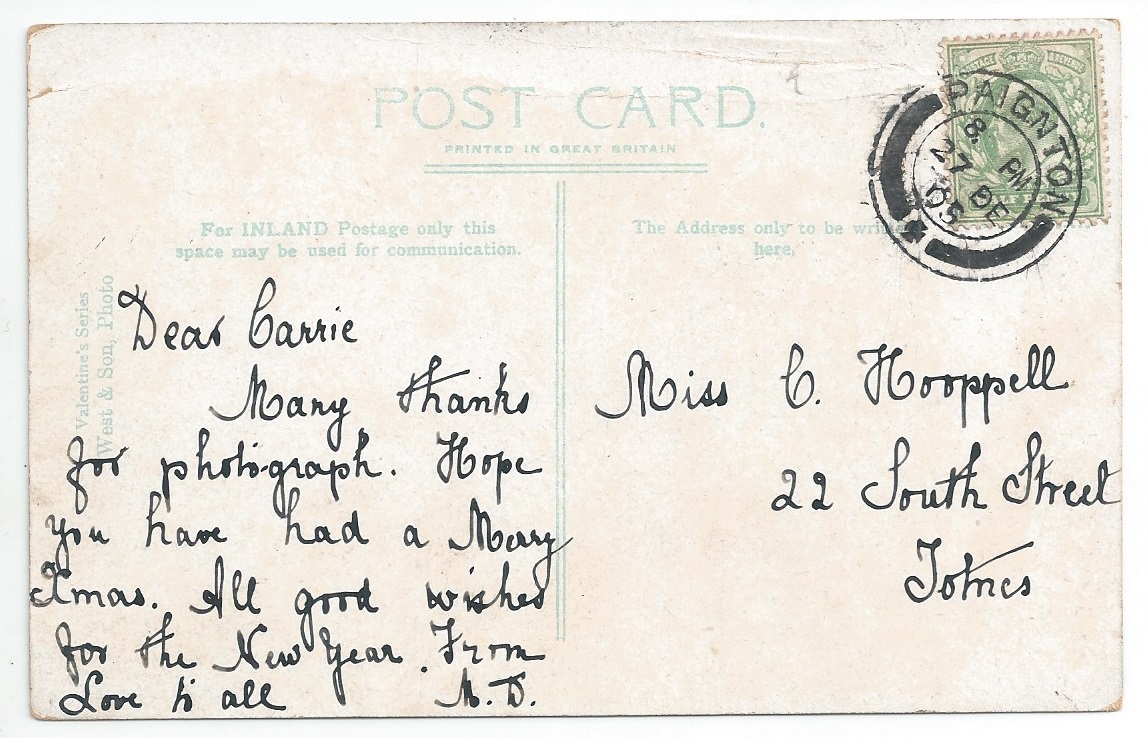 POST CARD.
PRINTED IN GREAT BRITAIN
For INLAND Postage only this
space may be used for communication.
The Address only to be written
here.
POSTAGE REVENUE
PAIGNTON
8. PM
27 DE
05
Valentine's Series
West & Son, Photo
Dear Carrie
Many thanks
for photograph. Hope
you have had a Merry
Xmas. All good wishes
for the New Year. From
Love to all M. D.
Miss C. Hooppell
22 South Street
Totnes